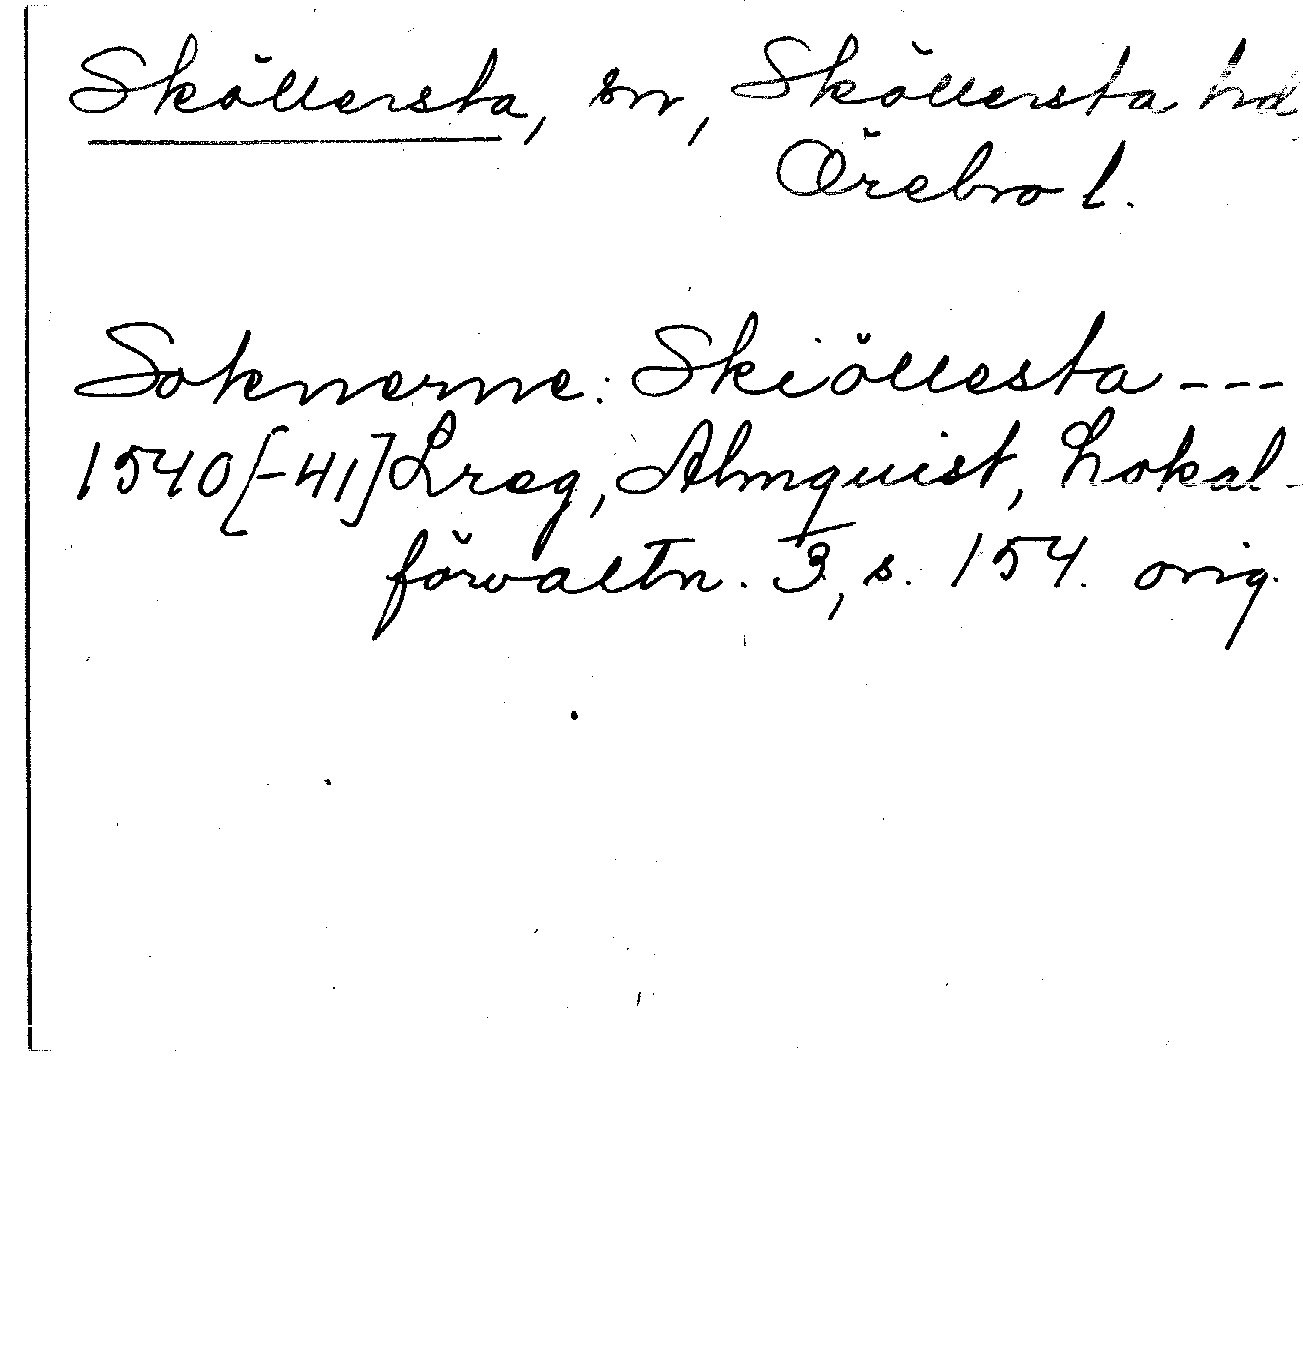 Sköllersta, sn, Sköllersta hd
Örebro l.
Soknerne: Skiöllesta ---
1540[-41] Lreg, Almquist, Lokal-
förvaltn. 3, s. 154. orig.